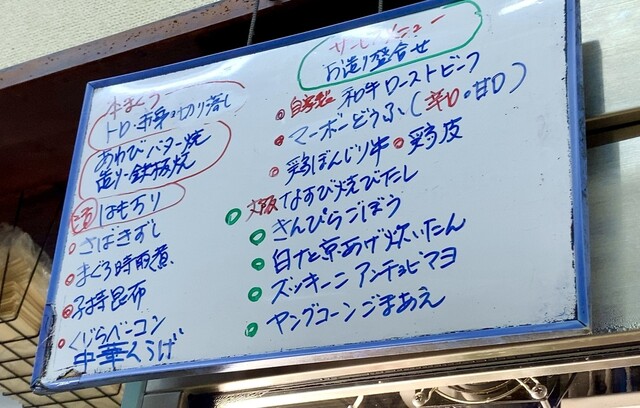 メニュー
お造り盛合せ
自家製 和牛ローストビーフ
マーボーどうふ(辛口・甘口)
鶏ぼんじり串 鶏皮
大阪なすび焼びたし
きんぴらごぼう
白ナと京あげ炊いたん
ズッキーニ アンチョビマヨ
ヤングコーンごまあえ
本まぐろ
トロ・赤身の切り落し
あわびバター焼
造り・鉄板焼
はもちり
さばきずし
まぐろ時雨煮
子持昆布
くじらベーコン
中華くらげ